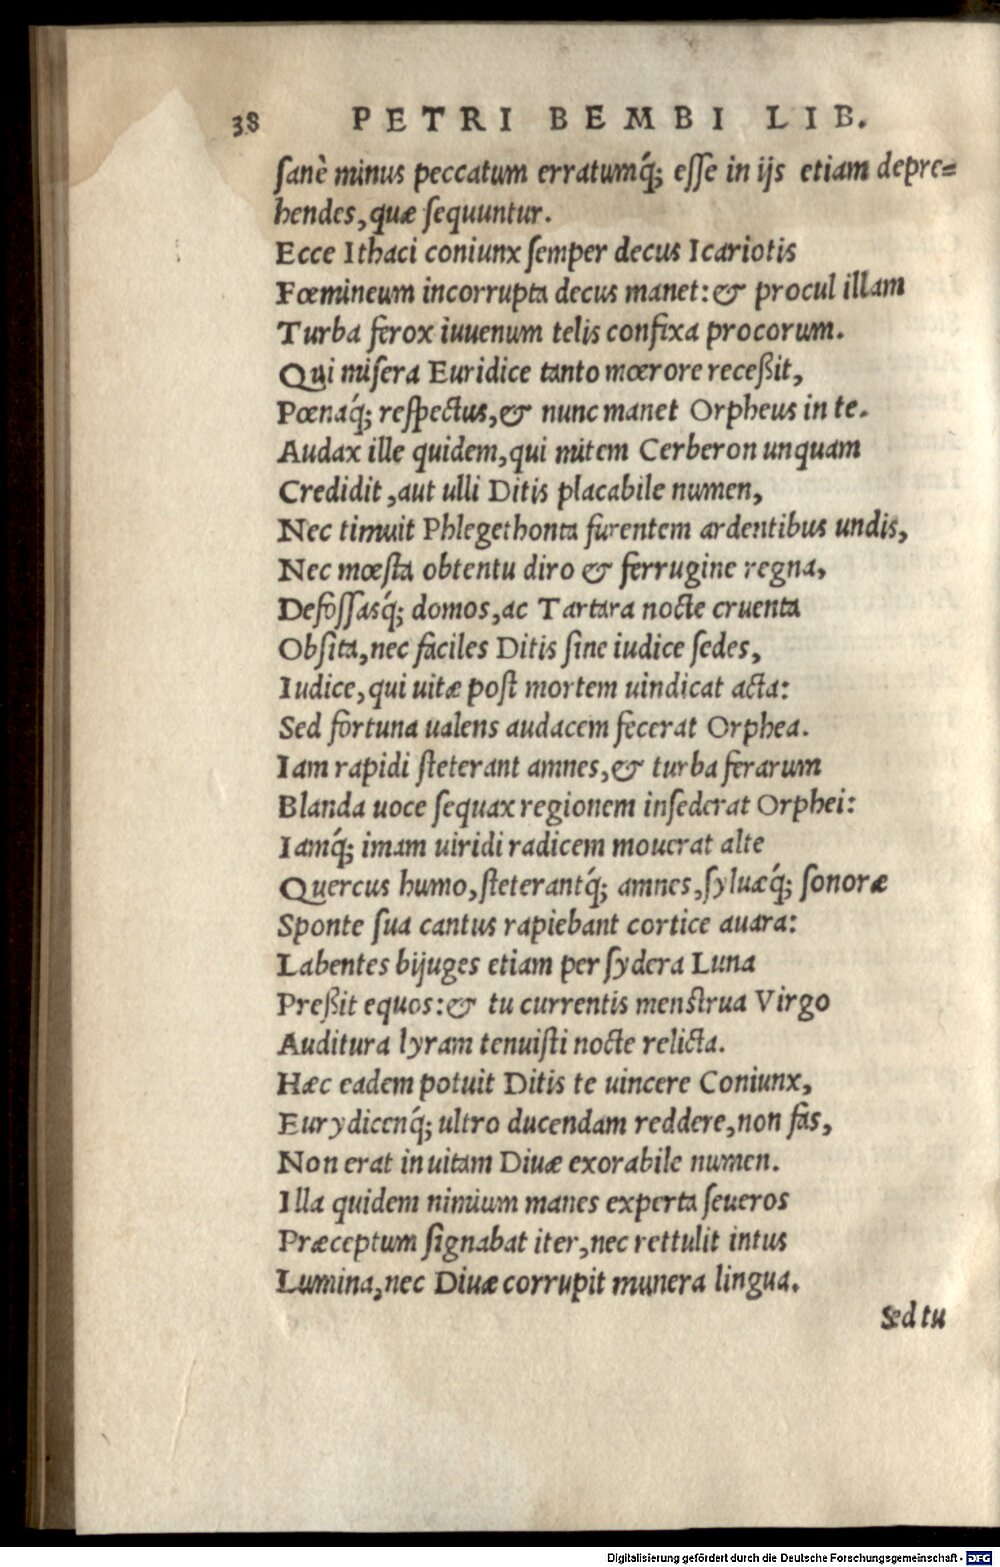 38 PETRI BEMBI LIB.
ſanè minus peccatum erratumq́; eſſe in ijs etiam depre=
hendes, quæ ſequuntur.
Ecce Ithaci coniunx ſemper decus Icariotis
Fœmineum incorrupta decus manet: & procul illam
Turba ferox iuuenum telis confixa procorum.
Qui miſera Euridice tanto mœrore receßit,
Pœnaq́; reſpectus, & nunc manet Orpheus in te.
Audax ille quidem, qui mitem Cerberon unquam
Credidit, aut ulli Ditis placabile numen,
Nec timuit Phlegethonta furentem ardentibus undis,
Nec mœſta obtentu diro & ferrugine regna,
Defoſſasq́; domos, ac Tartara nocte cruenta
Obſita, nec faciles Ditis ſine iudice ſedes,
Iudice, qui uitæ poſt mortem uindicat acta:
Sed fortuna ualens audacem fecerat Orphea.
Iam rapidi ſteterant amnes, & turba ferarum
Blanda uoce ſequax regionem inſederat Orphei:
Iamq́; imam uiridi radicem mouerat alte
Quercus humo, ſteterantq́; amnes, ſyluæq́; ſonoræ
Sponte ſua cantus rapiebant cortice auara:
Labentes bijuges etiam per ſydera Luna
Preßit equos: & tu currentis menſtrua Virgo
Auditura lyram tenuiſti nocte relicta.
Hæc eadem potuit Ditis te uincere Coniunx,
Eurydicenq́; ultro ducendam reddere, non fas,
Non erat inuitam Diuæ exorabile numen.
Illa quidem nimium manes experta ſeueros
Præceptum ſignabat iter, nec rettulit intus
Lumina, nec Diuæ corrupit munera lingua.
Sed tu
Digitalisierung gefördert durch die Deutsche Forschungsgemeinschaft - DFG